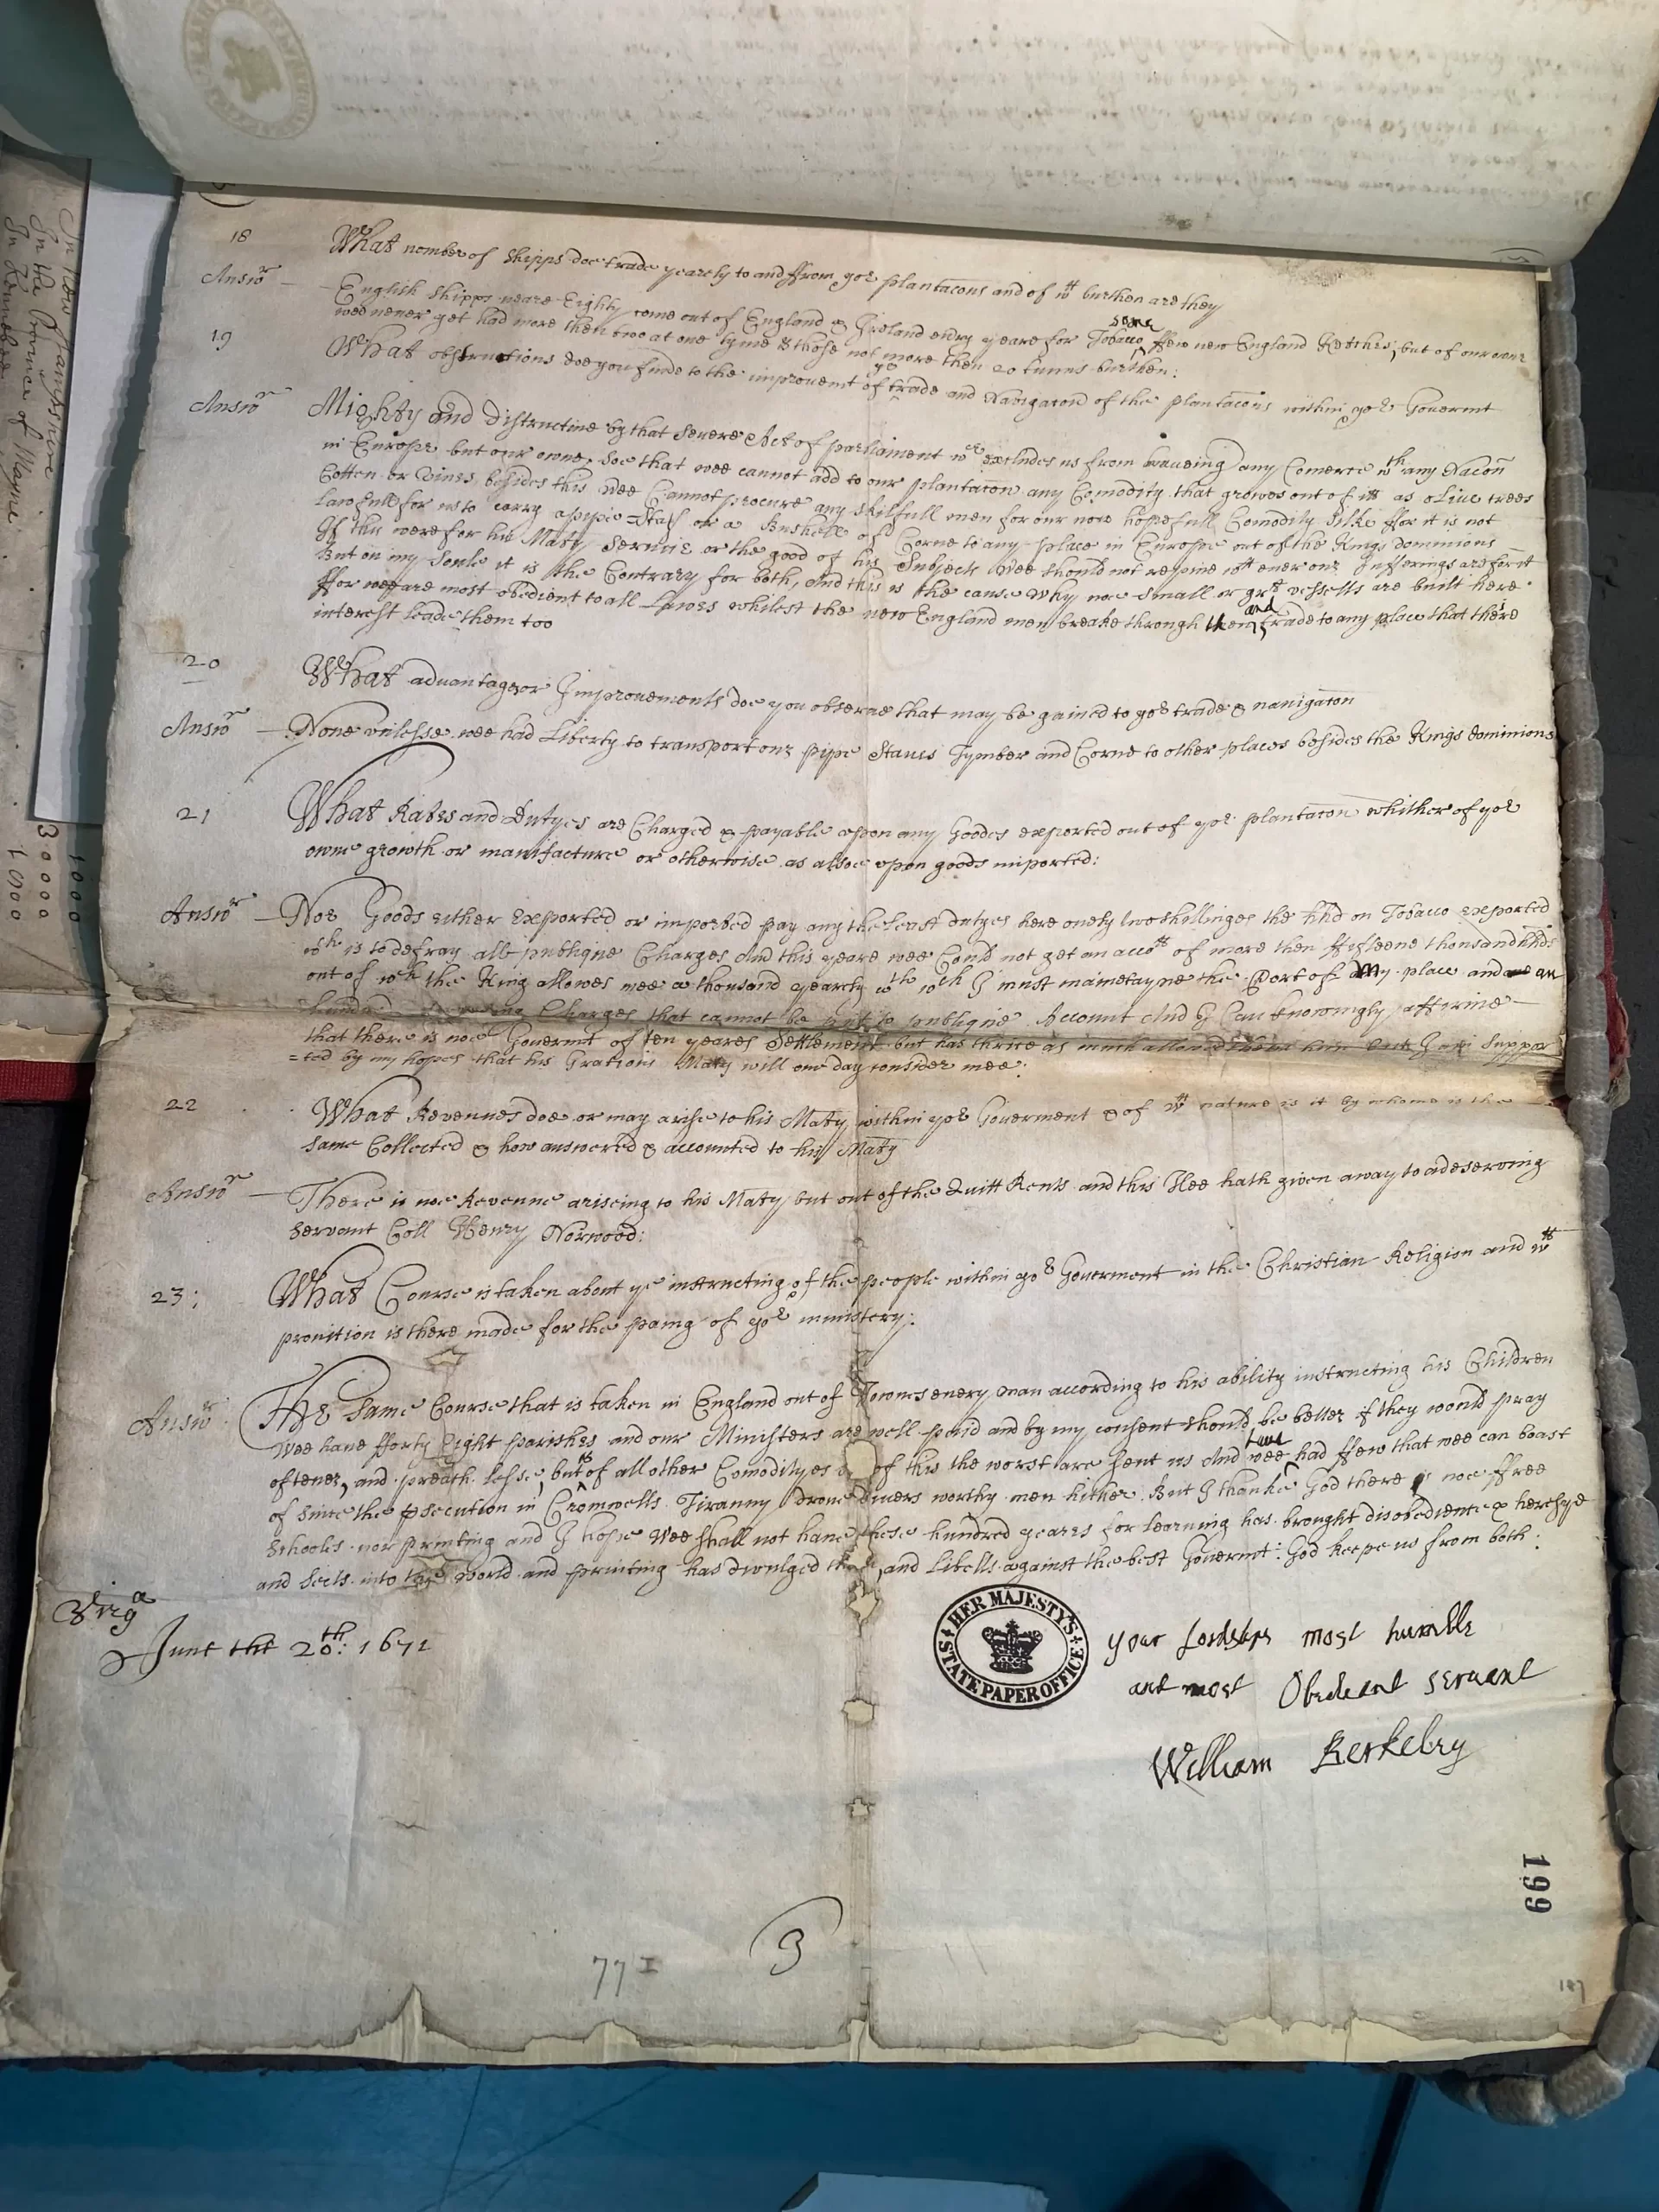 18 What nomber of Shipps doe trade yearely to and ffrom yor plantacons and of wtt burthen are they
Answr — English Shipps neare Eighty come out of England & Ireland every yeare for Tobacco, some ffew new England Ketches, but of our owne
wee never yet had more then two at one tyme & those not more then 20 tunns burthen:
19 What obstructions doe you finde to the improvemt of ye trade and Navigacon of the plantacons within yor Governt
Answr Mighty and Distructive by that Severe Act of parliament wch excludes us from haveing any Comerce wth any Nacon
in Europe but our owne, Soe that wee cannot add to our plantacon any Comodity that growes out of itt as olive trees
Cotten or Vines, besides this wee Cannot procure any skilfull men for our now hopefull Comodity Silke ffor it is not
lawfull for us to carry a pipe Staf or a Bushell of Corne to any place in Europe out of the Kings dominions
If this were for his Maty Service or the good of his Subjects wee should not repine wtt ever our Sufferings are for it
But on my Soule it is the Contrary for both, And this is the cause why noe small or grt vessells are built here
ffor wee are most obedient to all Lawes whilest the new England men breake through them, and trade to any place that their
interest leade them too
20 What advantages or Improvements doe you observe that may be gained to yor trade & navigaton
Answr — None unlesse wee had Liberty to transport our pipe Staves Tymber and Corne to other places besides the Kings dominions
21 What Rates and Dutyes are Charged & payable upon any Goodes exported out of yor plantacon whither of yor
owne growth or manifacture or otherwise as alsoe upon goods imported:
Answr — Noe Goods either Exported or imported pay any the least dutyes here onely two shillinges the hhd on Tobacco exported
wch is to defray all publique Charges And this yeare wee Could not get an accott of more then ffifteene thousand hhds
out of wch the King allowes mee a thousand yearely wth wch I must mainetayne the Port of my place and an
hundred Charges that cannot be put to publique Account And I Can knowingly afferme
that there is noe Governt of ten yeares Settlement but has thrice as much allowed him But I am Suppor
=ted by my hopes that his Gratious Maty will one day consider mee:
22 What Revenues doe or may arise to his Maty within yor Goverment & of wtt nature is it by whome is the
Same Collected & how answered & accounted to his Maty
Answr — There is noe Revenue ariseing to his Maty but out of the Quitt Rents and this Hee hath given away to a deserving
Servant Coll Henry Norwood:
23: What Course is taken about ye instructing of the people within yor Goverment in the Christian Religion and wtt
provition is there made for the paing of yor ministery:
Answr The Same Course that is taken in England out of Townes every man according to his ability instructing his Children
Wee have fforty Eight parishes and our Ministers are well paid and by my consent should be better if they would pray
oftener, and preach lesse, but as of all other Comodityes of this the worst are Sent us And wee have had ffew that wee can boast
of since the psecution in Cromwells Tiranny drove divers worthy men hither But I thanke God there is noe ffree
Schooles nor printing and I hope Wee shall not have these hundred yeares for Learning has brought disobedience & heresye
and Sects into the World and printing has divulged them, and Libells against the best Governt: God keepe us from both:
Virga
June the 20th: 1671
HER MAJESTY'S STATE PAPER OFFICE
your Lordships most humble
and most Obedeant servant
William Berkeley
199
3
77 I
187
In New Hampshire
In the Province of Mayne
1000
3000
1500